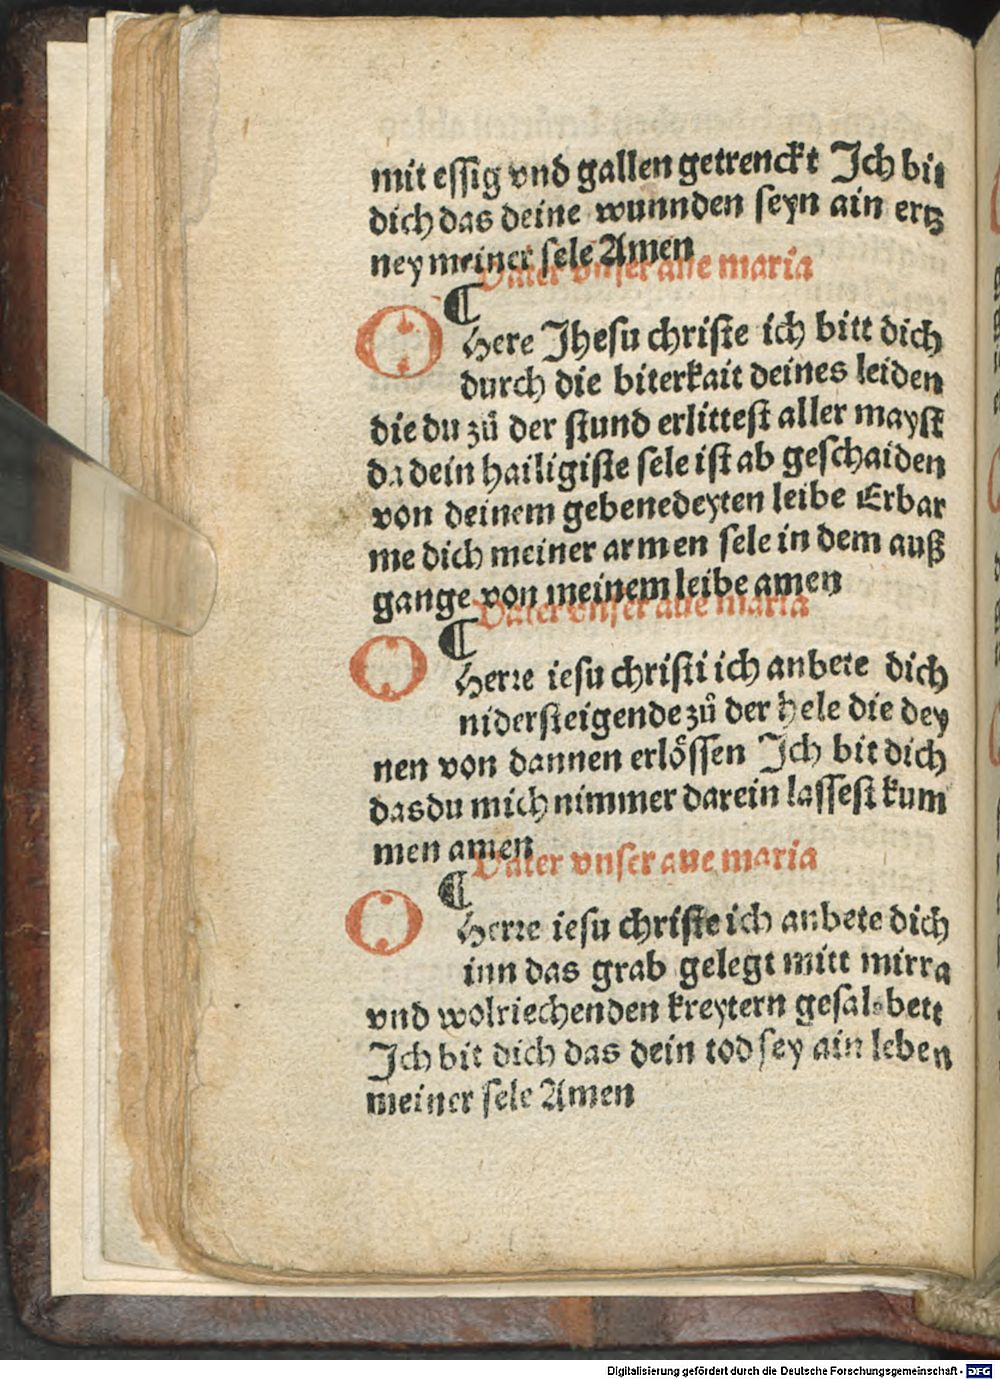 mit essig vnd gallen getrenckt Jch bit
dich das deine wunnden seyn ain ertz
ney meiner sele Amen
Vater vnser aue maria
¶
O Here Jhesu christe ich bitt dich
durch die biterkait deines leiden
die du zů der stund erlittest aller mayst
da dein hailigiste sele ist ab geschaiden
von deinem gebenedeyten leibe Erbar
me dich meiner armen sele in dem auß
gange von meinem leibe amen
Vater vnser aue maria
¶
O Herre iesu christi ich anbete dich
nidersteigende zů der hele die dey
nen von dannen erlössen Jch bit dich
das du mich nimmer darein lassest kum
men amen
Vater vnser aue maria
¶
O Herre iesu christe ich anbete dich
inn das grab gelegt mitt mirra
vnd wolriechenden kreytern gesalbett
Jch bit dich das dein tod sey ain leben
meiner sele Amen
Digitalisierung gefördert durch die Deutsche Forschungsgemeinschaft - DFG